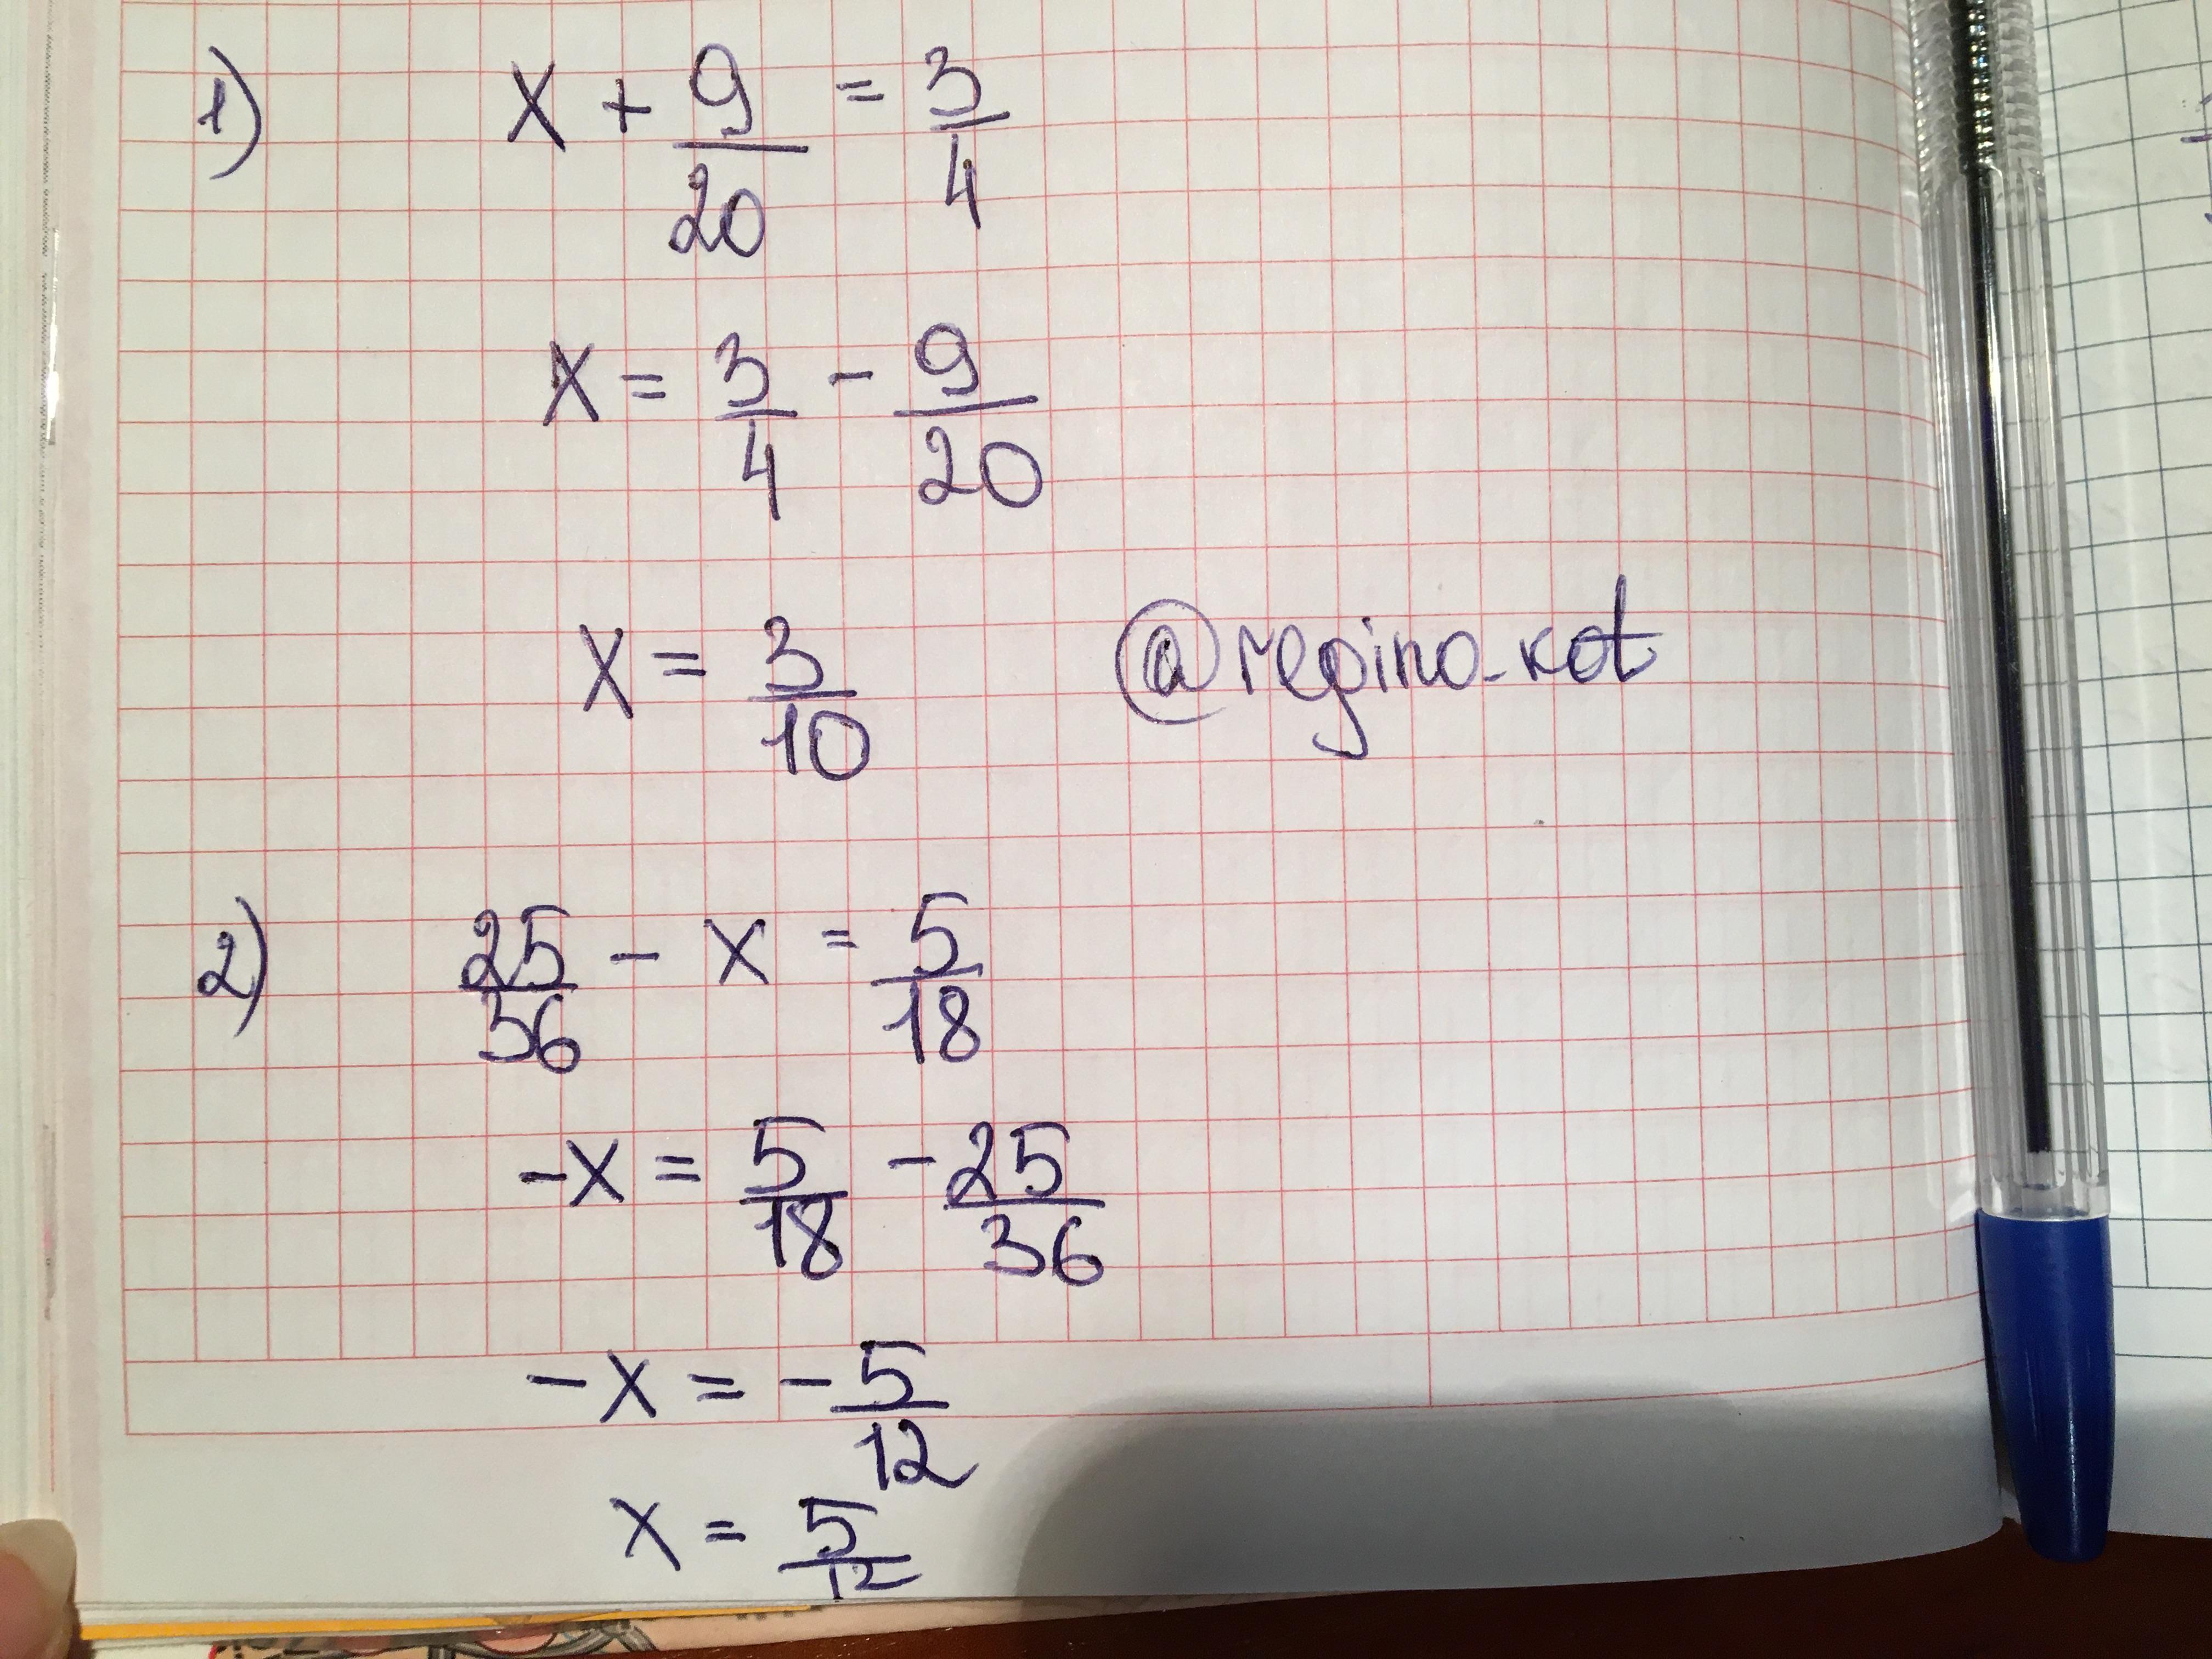 1) x + 9/20 = 3/4
x = 3/4 - 9/20
x = 3/10
@regina_kot
2) 25/36 - x = 5/18
-x = 5/18 - 25/36
-x = -5/12
x = 5/12